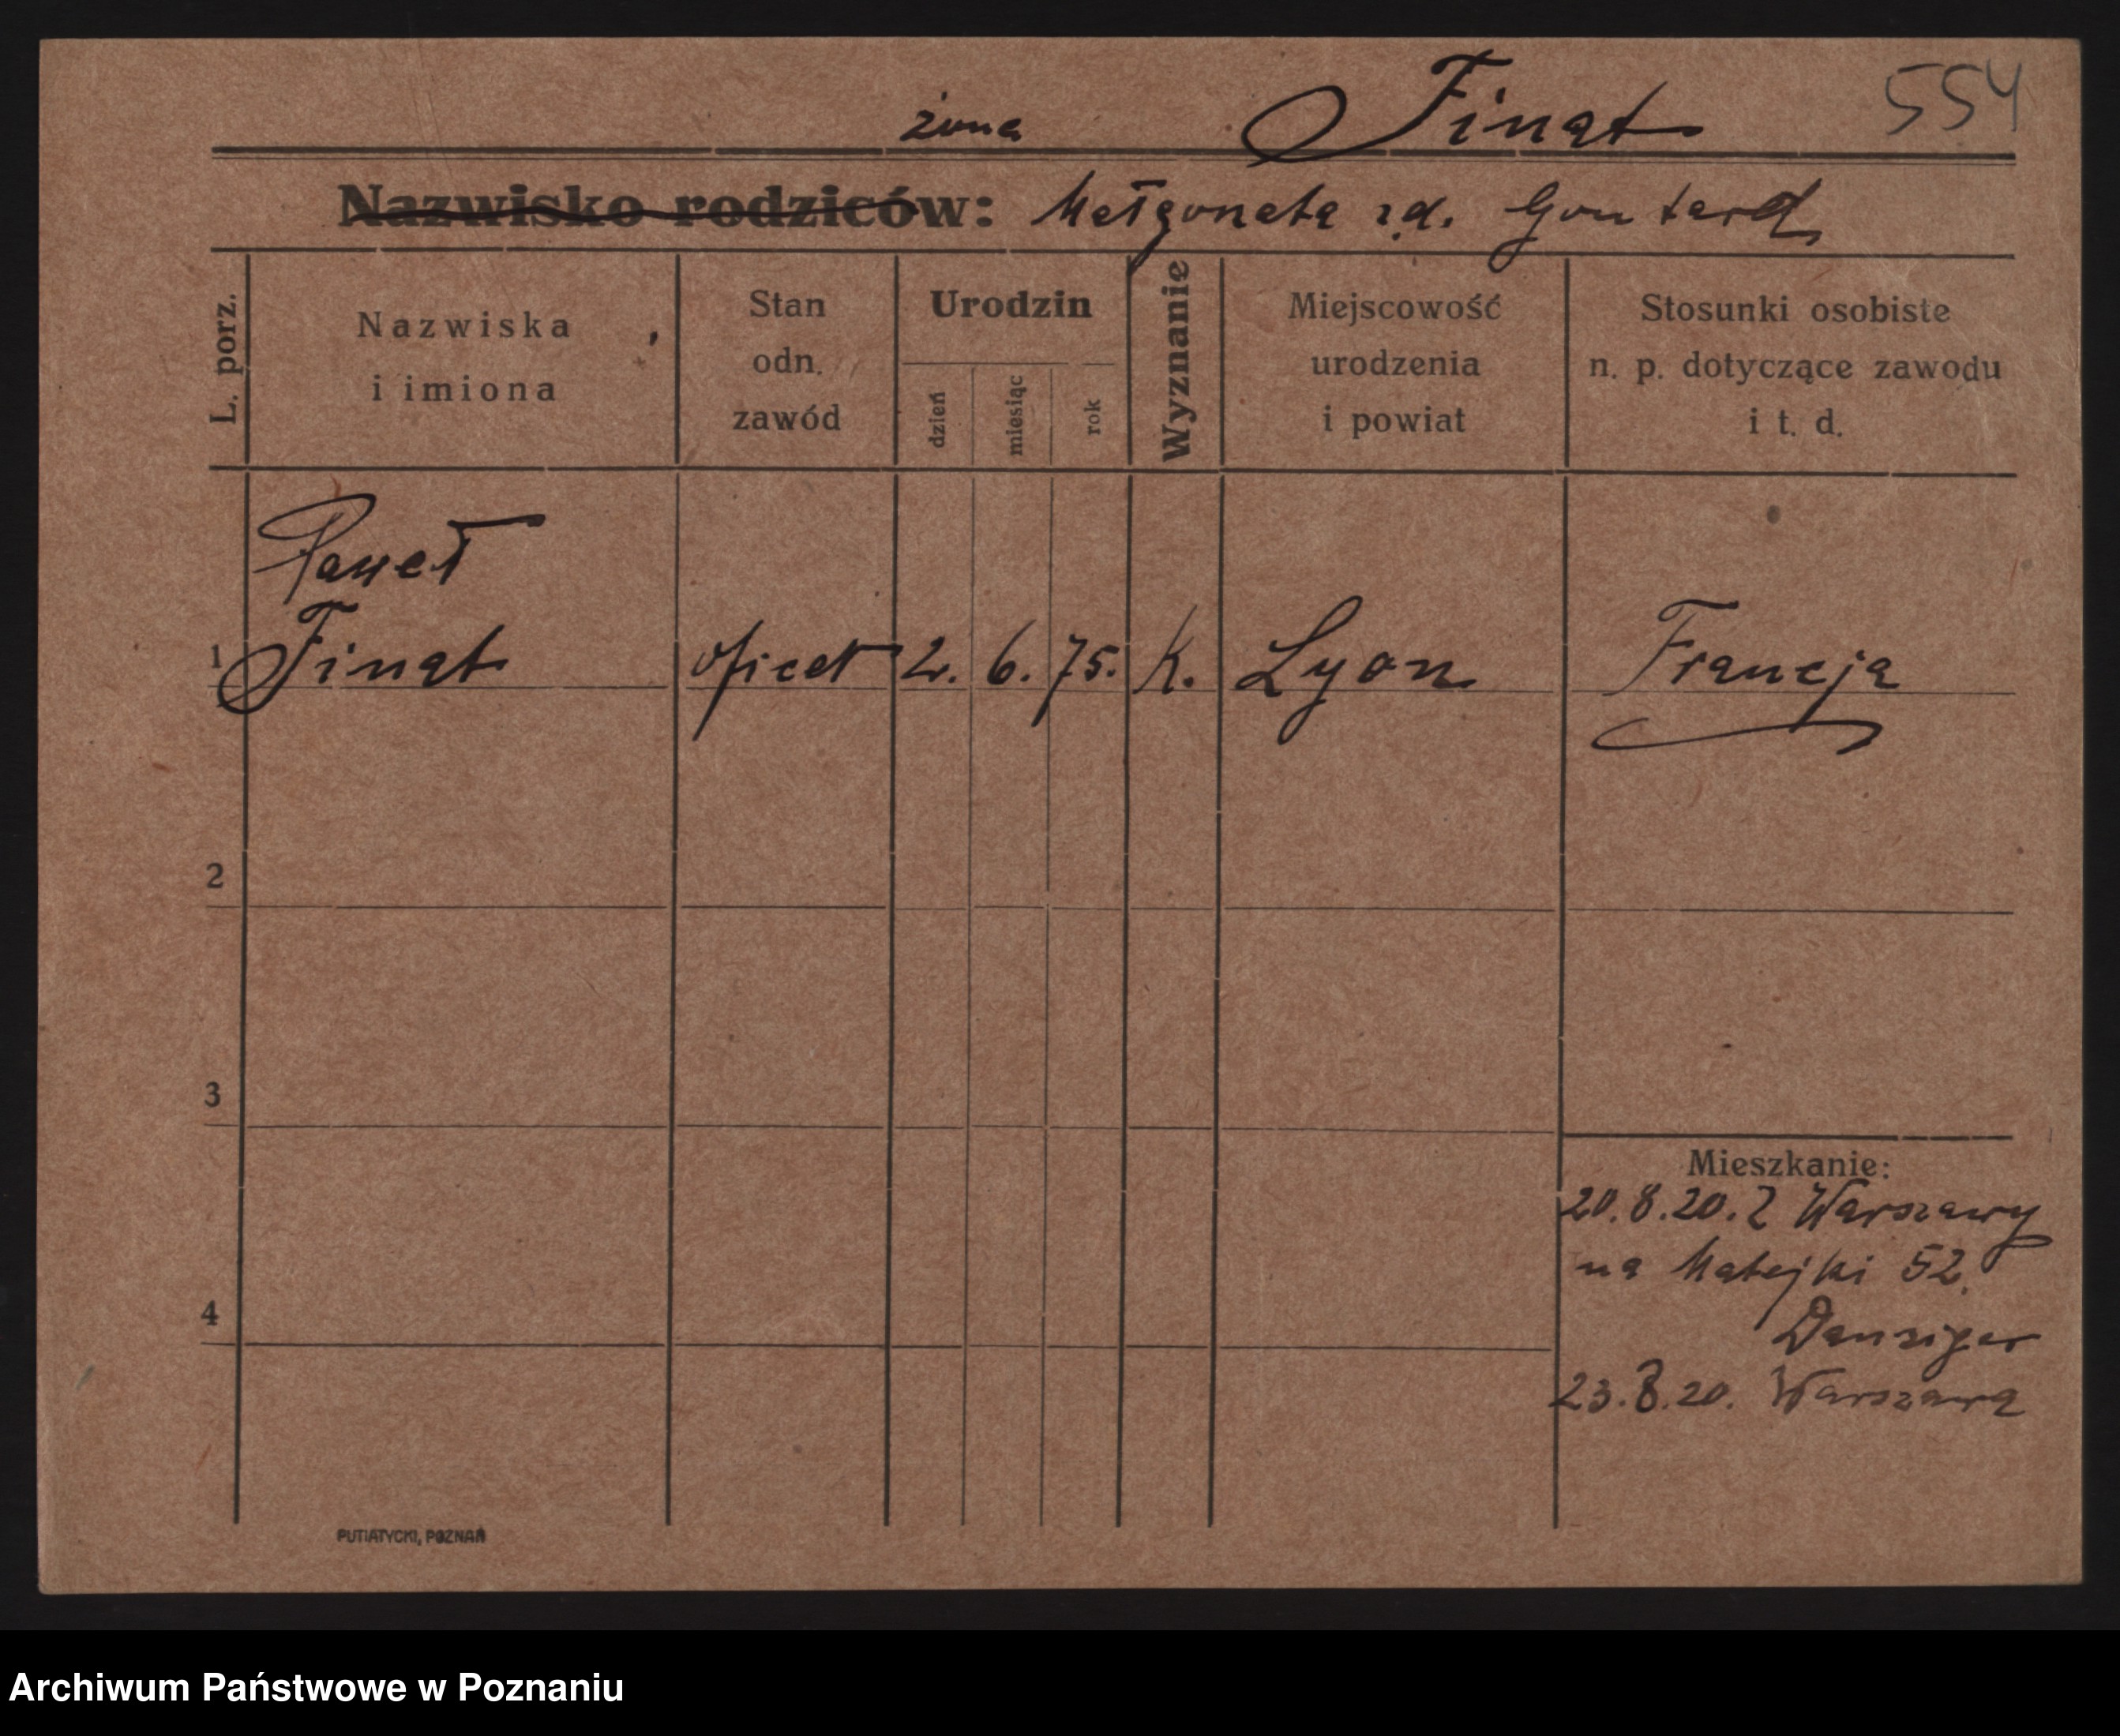 żona Finat 554
Nazwisko rodziców: Małgorzata Gontard
L. porz.
Nazwiska
i imiona
Stan
odn.
zawód
Urodzin
dzień
miesiąc
rok
Wyznanie
Miejscowość
urodzenia
i powiat
Stosunki osobiste
n. p. dotyczące zawodu
i t. d.
Paweł
1 Finat oficer 2. 6. 75. K. Lyon Francja
2
3
4
Mieszkanie:
20.8.20. Z Warszawy
na Matejki 52.
Danziger
23.8.20. Warszawa
PUTIATYCKI, POZNAŃ
Archiwum Państwowe w Poznaniu